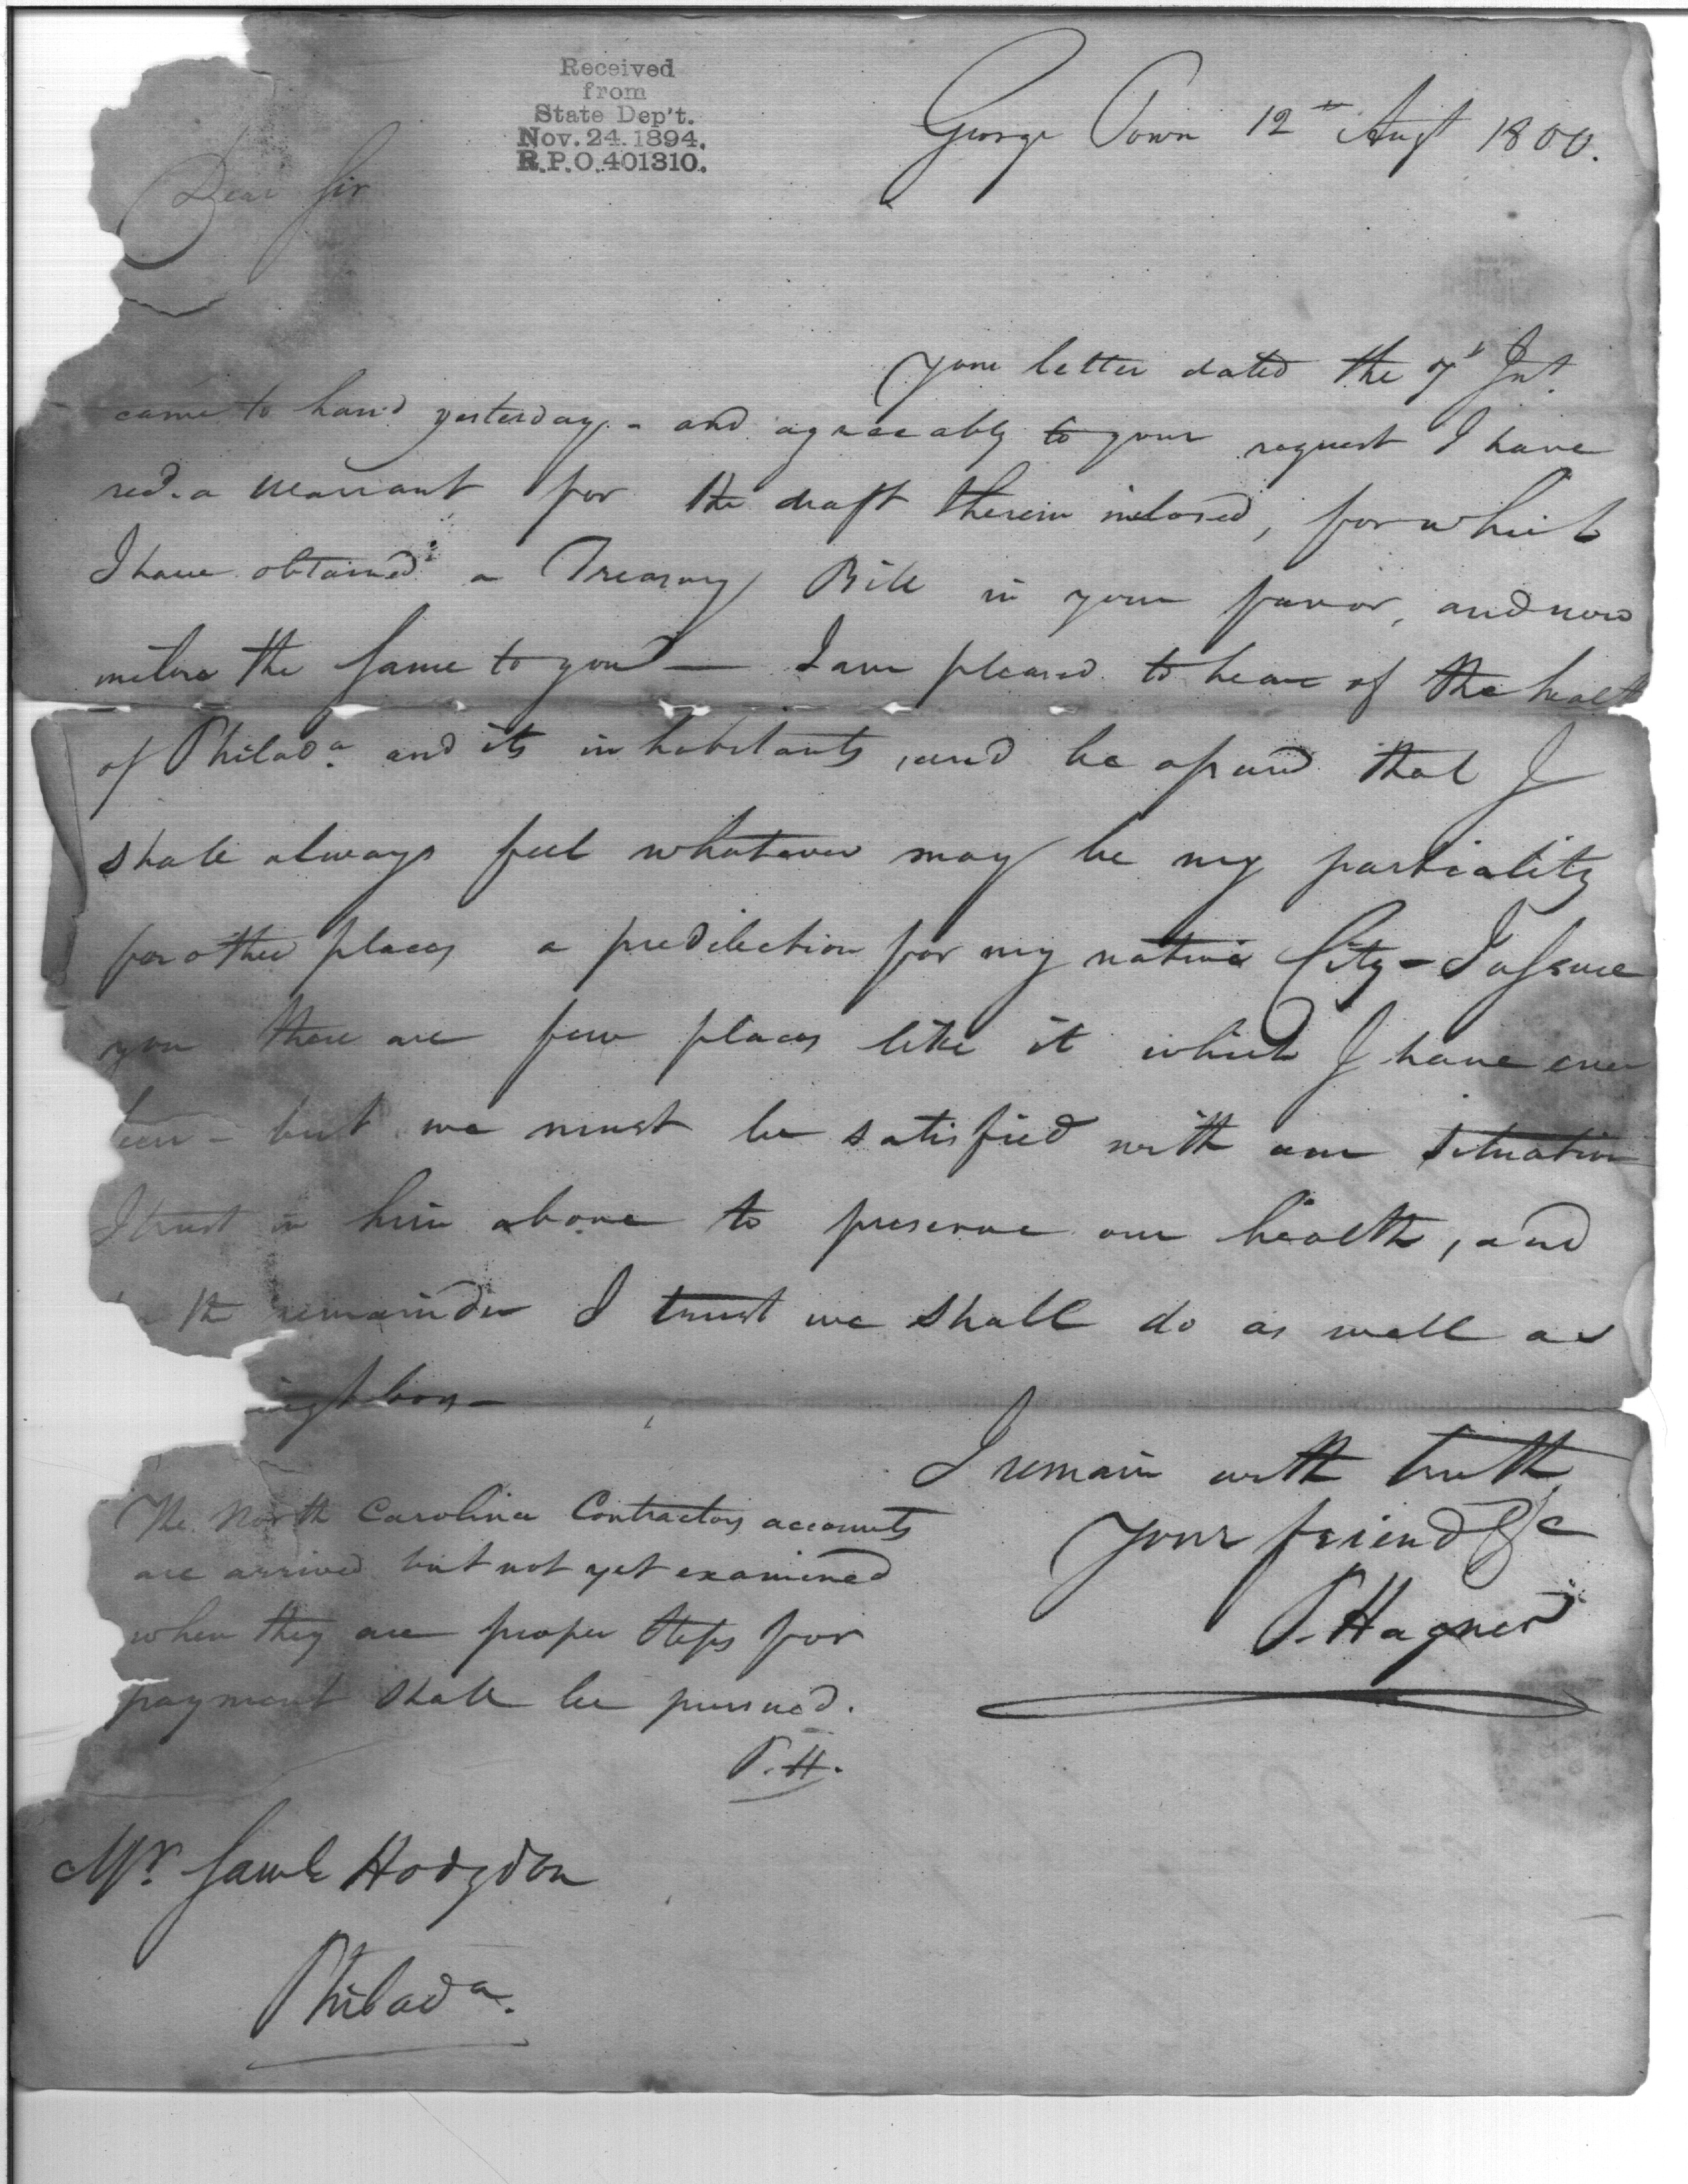 Received
from
State Dep't.
Nov. 24. 1894.
R.P.O. 401310.
George Town 12th Augt 1800.
Dear Sir
Your letter dated the 7th Inst.
came to hand yesterday - and agreeably to your request I have
recd. a Warrant for the draft therein inclosed, for which
I have obtained a Treasury Bill in your favor, and now
inclose the same to you — I am pleased to hear of the healt
of Philada. and its inhabitants, and be assured that I
shall always feel whatever may be my partiality
for other places a predilection for my native City - I assure
you there are few places like it which I have ever
seen - but we must be satisfied with our situation
I trust in him above to preserve our health, and
the remainder I trust we shall do as well as
neighbors -
I remain with truth
Your friend &c
P. Hagner
The North Carolina Contractors accounts
are arrived but not yet examined
when they are proper steps for
payment shall be pursued.
P.H.
Mr. Saml Hodgdon
Philada.